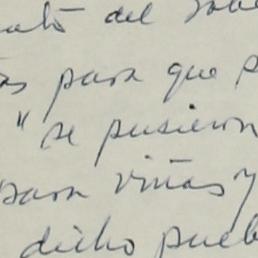 del
para que
" se pusieron
para viñas y
dicho pueb